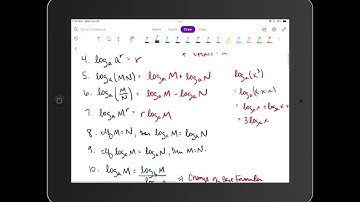 Draw
4. logₐ aʳ = r
5. logₐ(MN) = logₐ M + logₐ N
6. logₐ(M/N) = logₐ M - logₐ N
7. logₐ Mʳ = r logₐ M
8. If M=N, then logₐ M = logₐ N
9. If logₐ M = logₐ N, then M=N.
10. logₐ M = log_b M / → Change of Base Formula
logₐ(x³)
= logₐ(x·x·x)
= logₐ x + logₐ x +
= 3 logₐ x